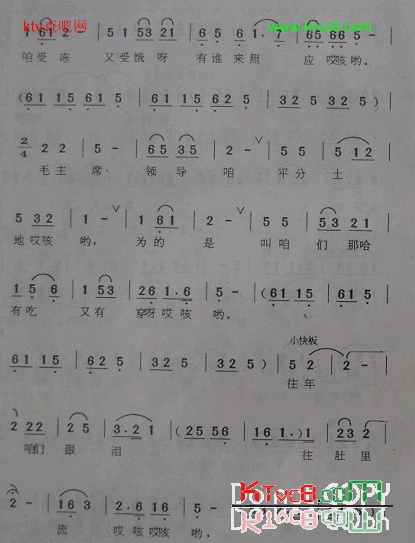 ktv酷吧网
1 61 2 - | 5 1 53 21 | 6 5 6 1· 7 | 65 66 5 - |
咱受冻 又受饿呀 有谁来照 应哎咳哟。
(61 15 61 5 | 61 5 62 5 | 325 325 325)
2/4 2 2 | 5 - | 65 35 | 2 - ∨ | 5 5 | 5 12 |
毛主席, 领导咱 平分土
5 32 | 1 - ∨ | 1 61 | 2 - ∨ | 5 5 | 53 21 |
地哎咳 哟, 为的 是 叫咱 们那哈
15 6 | 1 53 | 261·6 | 5 - | (61 15 | 61 5 |
有吃 又有 穿呀哎咳 哟。
61 15 | 625 5 | 325 | 325) | 5 2 | 2 - |
小快板
往年
2 22 | 2 5 | 3·2 1 | (25 56 | 161·) 1 | 23 2 |
咱们 眼 泪 往 肚里
2 - | 16 3 | 2·6 16 | 5 -
流 哎咳哎咳 哟,
DO NOT COPY
KTvc8.com